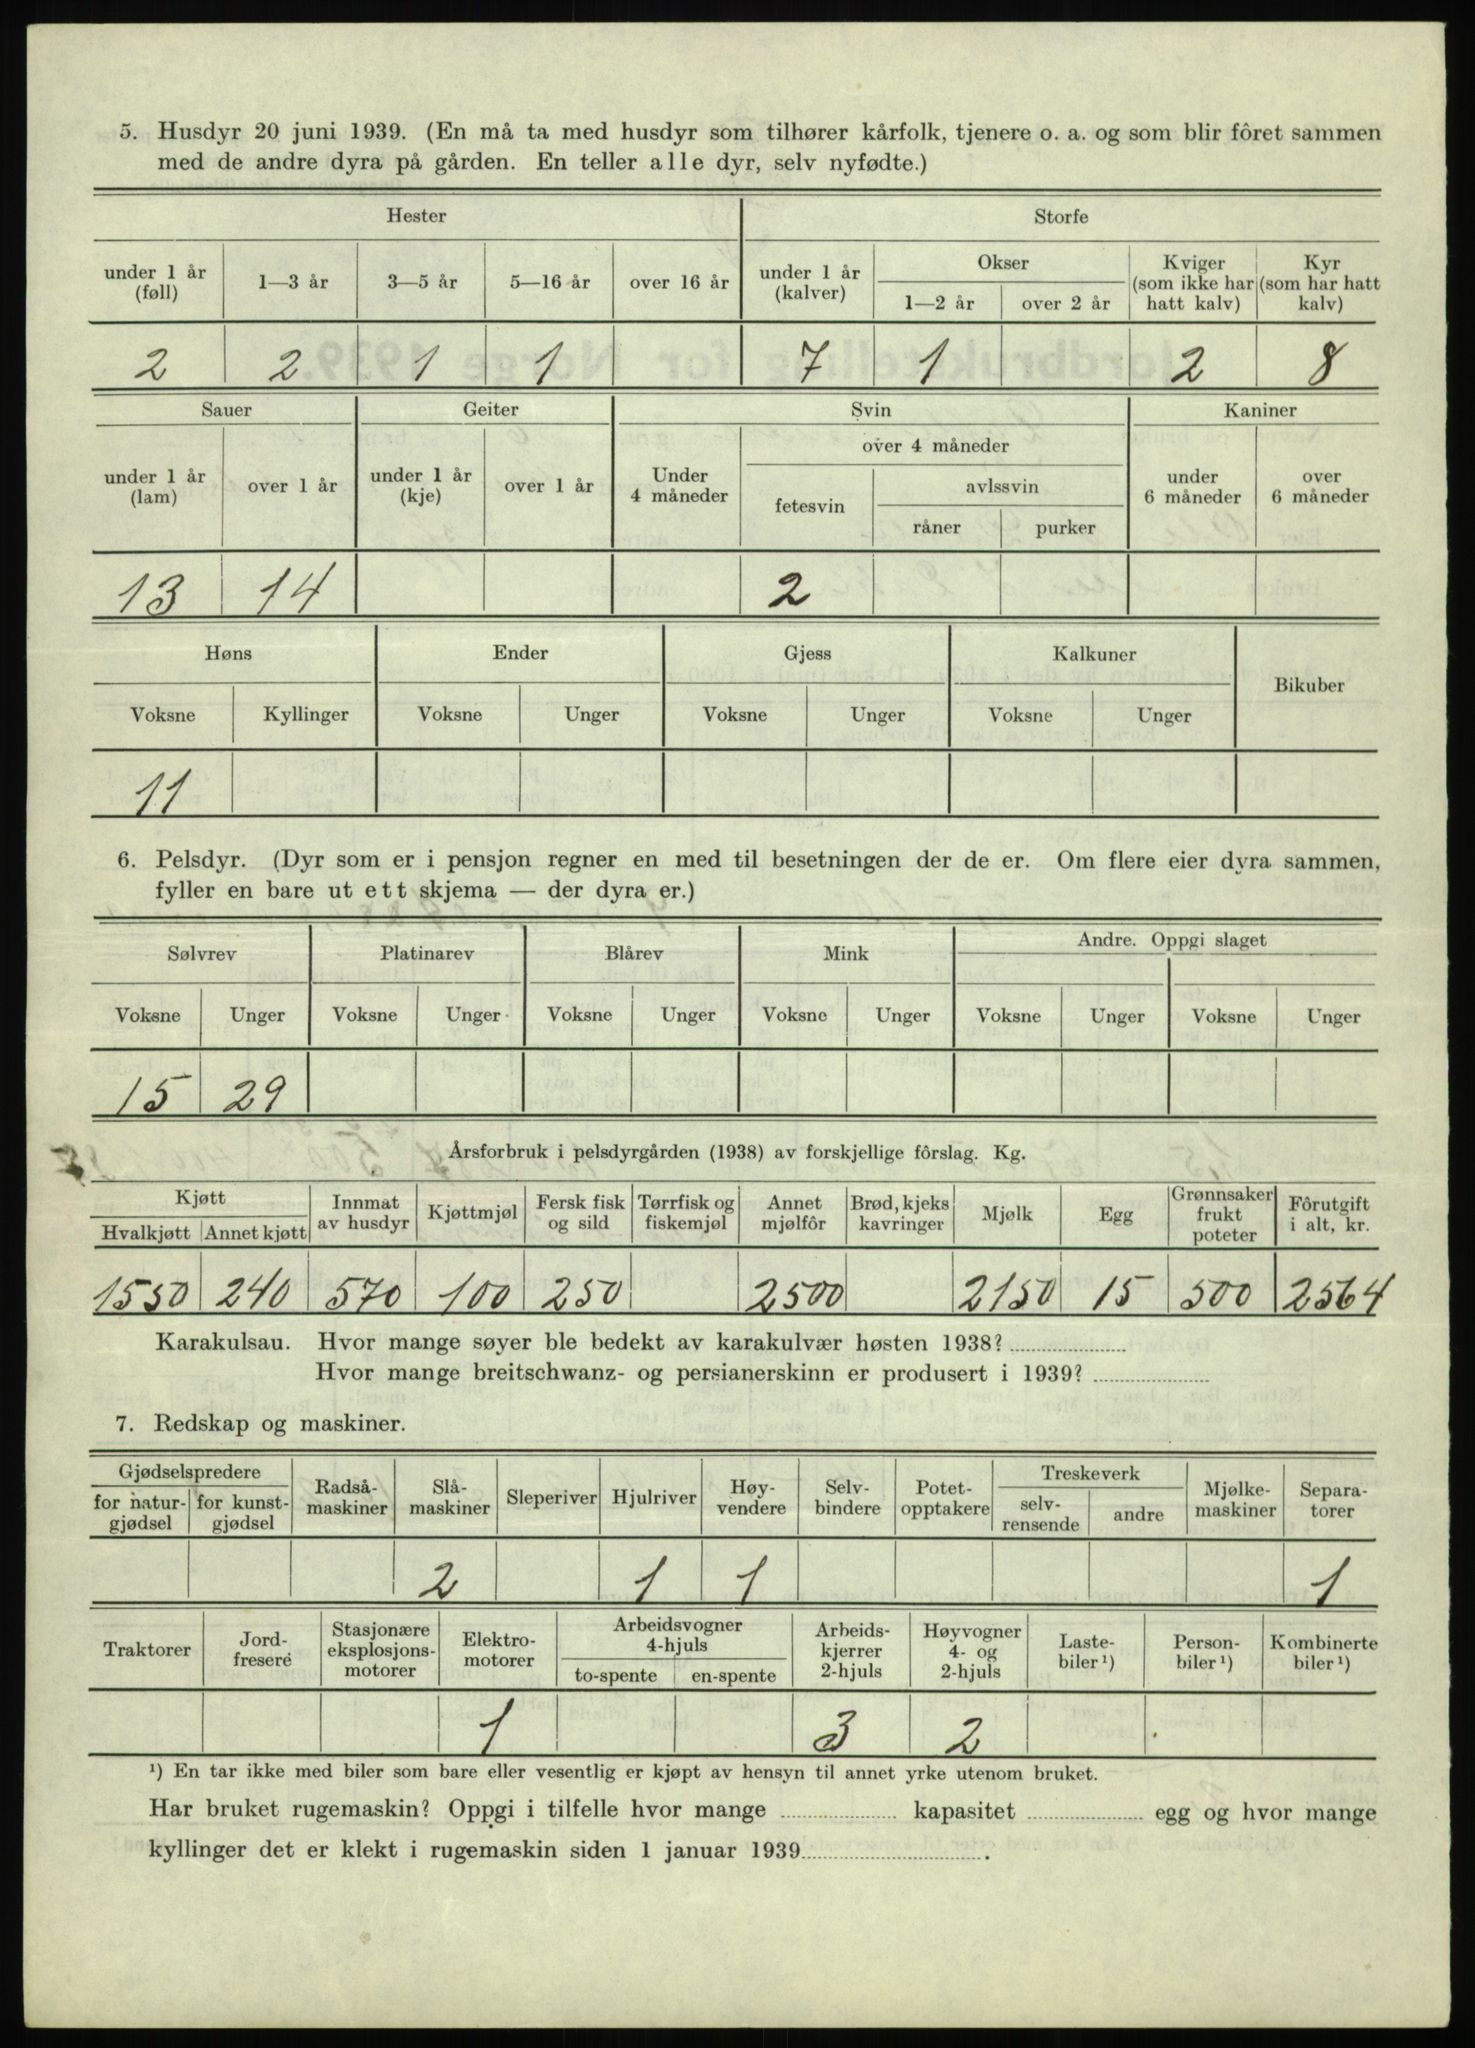 5. Husdyr 20 juni 1939. (En må ta med husdyr som tilhører kårfolk, tjenere o. a. og som blir fôret sammen
med de andre dyra på gården. En teller alle dyr, selv nyfødte.)
Hester Storfe
under 1 år (føll) 1—3 år 3—5 år 5—16 år over 16 år under 1 år (kalver) Okser 1—2 år over 2 år Kviger (som ikke har hatt kalv) Kyr (som har hatt kalv)
2 2 1 1 7 1 2 8
Sauer Geiter Svin Kaniner
under 1 år (lam) over 1 år under 1 år (kje) over 1 år Under 4 måneder over 4 måneder fetesvin avlssvin råner purker under 6 måneder over 6 måneder
13 14 2
Høns Ender Gjess Kalkuner Bikuber
Voksne Kyllinger Voksne Unger Voksne Unger Voksne Unger
11
6. Pelsdyr. (Dyr som er i pensjon regner en med til besetningen der de er. Om flere eier dyra sammen,
fyller en bare ut ett skjema — der dyra er.)
Sølvrev Platinarev Blårev Mink Andre. Oppgi slaget
Voksne Unger Voksne Unger Voksne Unger Voksne Unger Voksne Unger Voksne Unger
15 29
Årsforbruk i pelsdyrgården (1938) av forskjellige fôrslag. Kg.
Kjøtt Hvalkjøtt Annet kjøtt Innmat av husdyr Kjøttmjøl Fersk fisk og sild Tørrfisk og fiskemjøl Annet mjølfôr Brød, kjeks kavringer Mjølk Egg Grønnsaker frukt poteter Fôrutgift i alt, kr.
1550 240 570 100 250 2500 2150 15 500 2564
Karakulsau. Hvor mange søyer ble bedekt av karakulvær høsten 1938?
Hvor mange breitschwanz- og persianerskinn er produsert i 1939?
7. Redskap og maskiner.
Gjødselspredere for natur-gjødsel for kunst-gjødsel Radså-maskiner Slå-maskiner Sleperiver Hjulriver Høy-vendere Selv-bindere Potet-opptakere Treskeverk selv-rensende andre Mjølke-maskiner Separa-torer
2 1 1 1
Traktorer Jord-freseré Stasjonære eksplosjons-motorer Elektro-motorer Arbeidsvogner 4-hjuls to-spente en-spente Arbeids-kjerrer 2-hjuls Høyvogner 4- og 2-hjuls Laste-biler¹) Person-biler¹) Kombinerte biler¹)
1 3 2
¹) En tar ikke med biler som bare eller vesentlig er kjøpt av hensyn til annet yrke utenom bruket.
Har bruket rugemaskin? Oppgi i tilfelle hvor mange kapasitet egg og hvor mange
kyllinger det er klekt i rugemaskin siden 1 januar 1939.